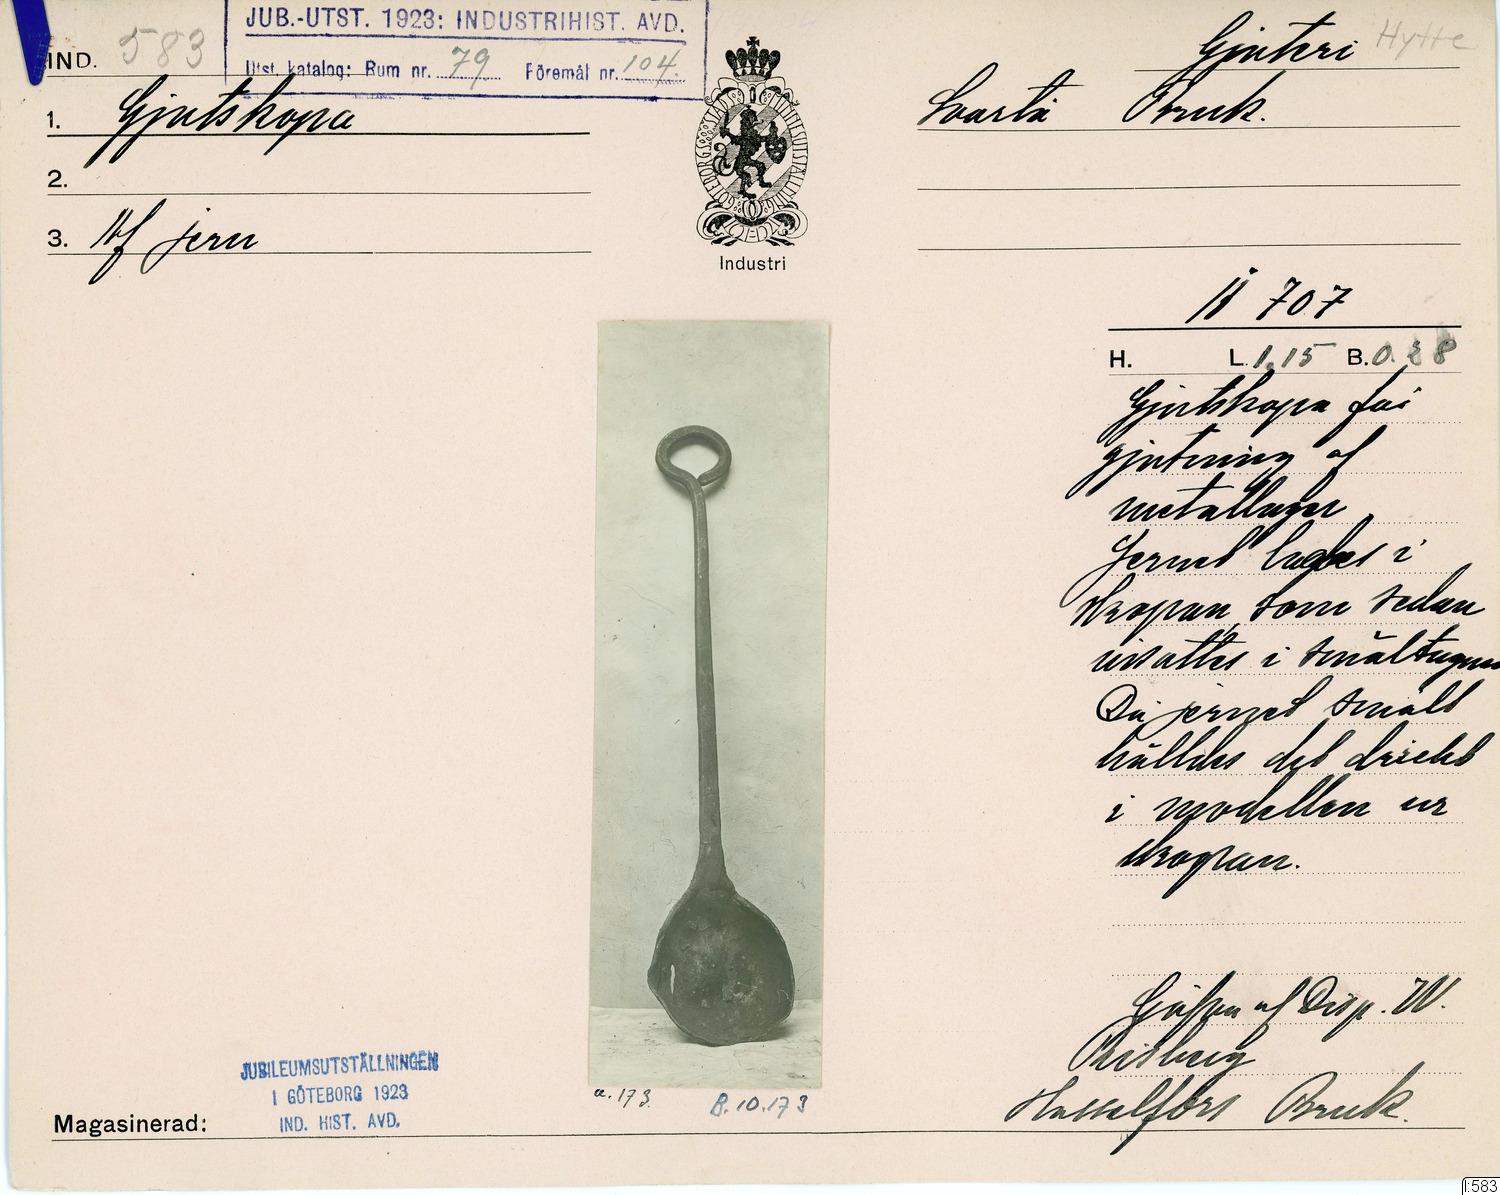 JUB.-UTST. 1923: INDUSTRIHIST. AVD.
Utst. katalog: Rum nr. 79 Föremål nr. 104
IND. 583
Gjuteri Hytte
1. Gjutskopa
Svartå Bruk.
2.
3. Af jern
GÖTEBORGS STADS JUBILEUMSUTSTÄLLNING
Industri
Å 707
H. L. 1,15 B. 0.28
Gjutskopa för
gjutning af
metallager
Jernet lades i
skopan, som sedan
insattes i smältugnen
Då jernet smält
hälldes det direkt
i modellen ur
skopan.
Gåfva af Disp. W.
Hasselfors Bruk.
a. 173
B. 10.173
JUBILEUMSUTSTÄLLNINGEN
I GÖTEBORG 1923
IND. HIST. AVD.
Magasinerad:
I:583